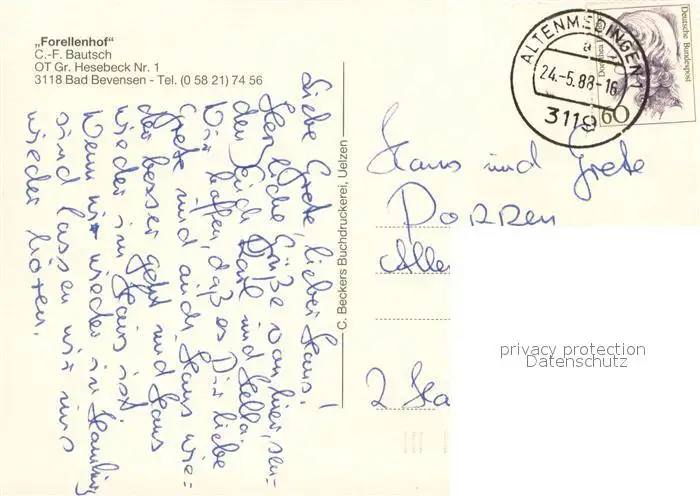 „Forellenhof"
C.-F. Bautsch
OT Gr. Hesebeck Nr. 1
3118 Bad Bevensen - Tel. (0 58 21) 74 56
Liebe Grete, lieber Hans!
Herzliche Grüße von hier, sen-
den Euch Karl und Hella.
Wir hoffen, daß es Dir liebe
Grete und auch Hans wie=
der besser geht und Hans
wieder im Haus ist.
Wenn wir wieder in Hamburg
sind lassen wir uns
wieder hören.
C. Beckers Buchdruckerei, Uelzen
Deutsche Bundespost
60
ALTENMEDINGEN 1
a
24.-5.88-16
3119
Hans und Grete
2 Ha
privacy protection
Datenschutz